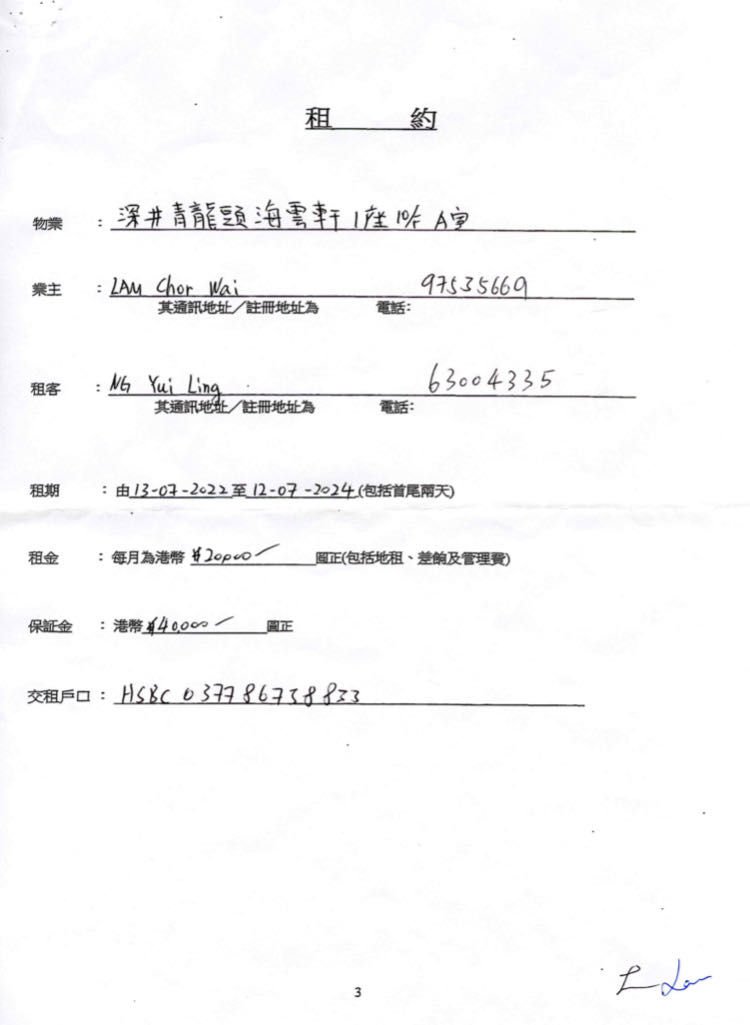 租 約
物業 : 深井青龍頭海雲軒1座10/F A室
業主 : LAM Chor Wai 97535669
其通訊地址/註冊地址為 電話:
租客 : NG Yui Ling 63004335
其通訊地址/註冊地址為 電話:
租期 : 由 13-07-2022 至 12-07-2024 (包括首尾兩天)
租金 : 每月為港幣 $20,000 圓正(包括地租、差餉及管理費)
保証金 : 港幣 $40,000 圓正
交租戶口 : HSBC 037786738833
3